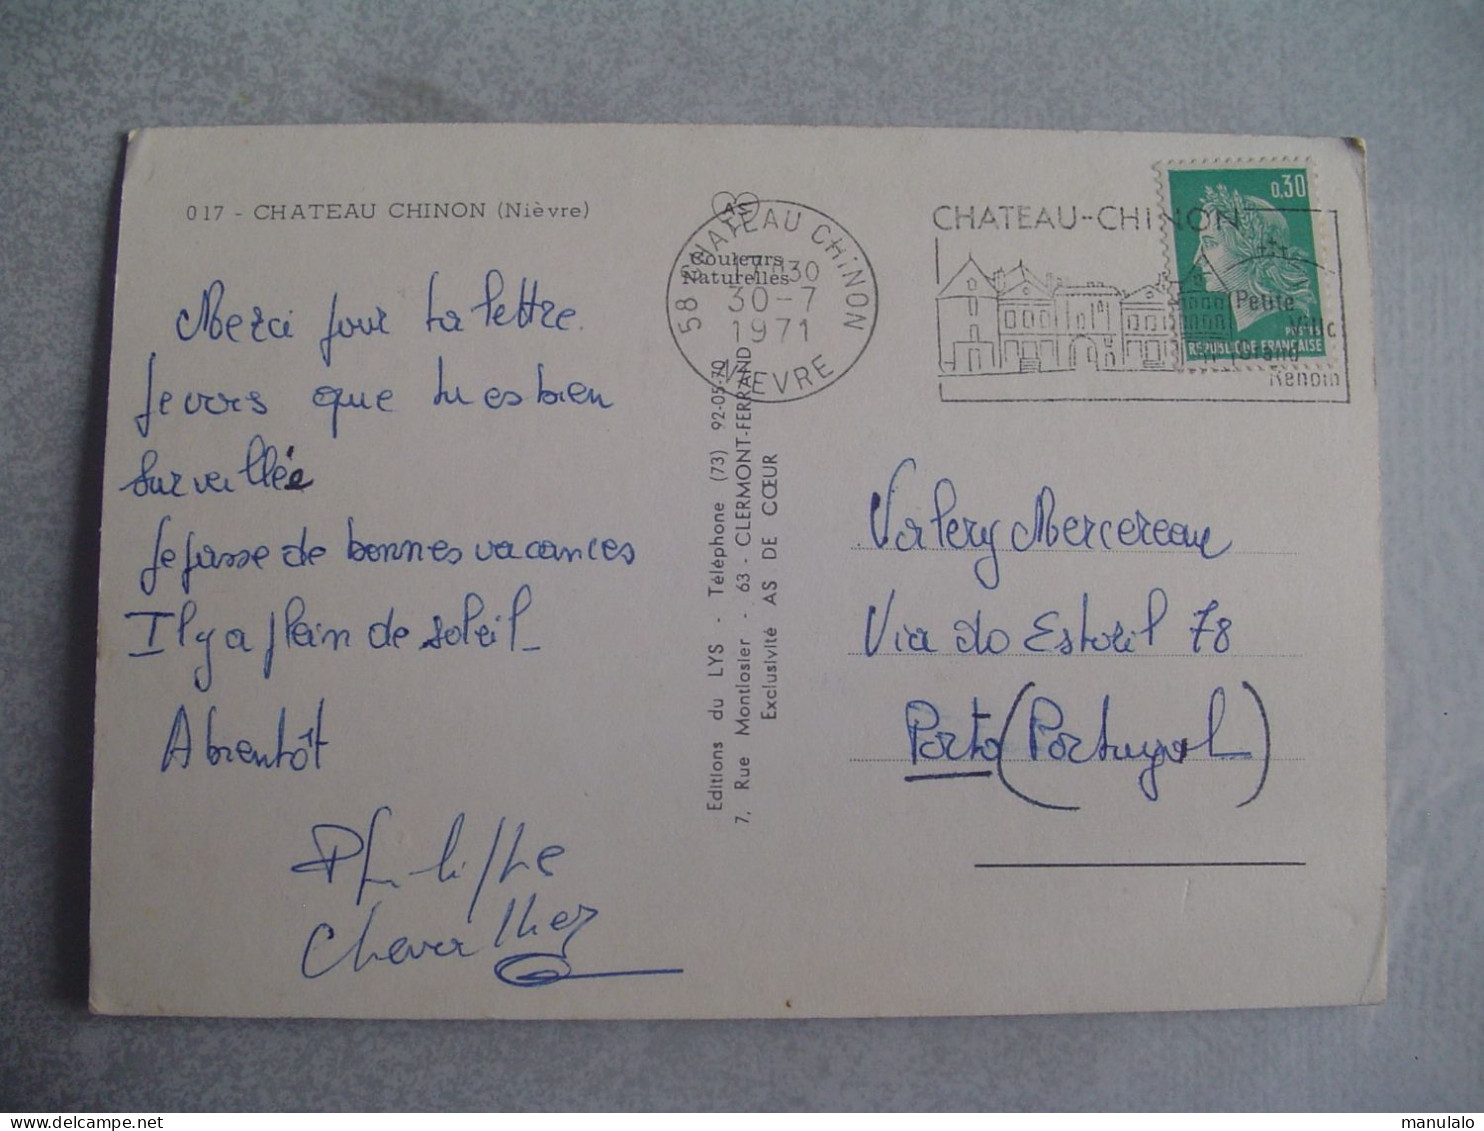 017 - CHATEAU CHINON (Nièvre)
Merci pour ta lettre.
Je vois que tu es bien
surveillée
Je passe de bonnes vacances
Il y a plein de soleil_
A bientôt
Philippe
Chevallier
AS
Couleurs
Naturelles
58 CHATEAU CHINON
17H30
30-7
1971
NIEVRE
Editions du LYS - Téléphone (73) 92-05-70
7, Rue Montlosier - 63 - CLERMONT-FERRAND
Exclusivité AS DE CŒUR
CHATEAU-CHINON
Petite
Ville
Grand
Renom
0,30
POSTES
REPUBLIQUE FRANÇAISE
Valery Mercereau
Via do Estoril 78
Porto (Portugal)
manulalo